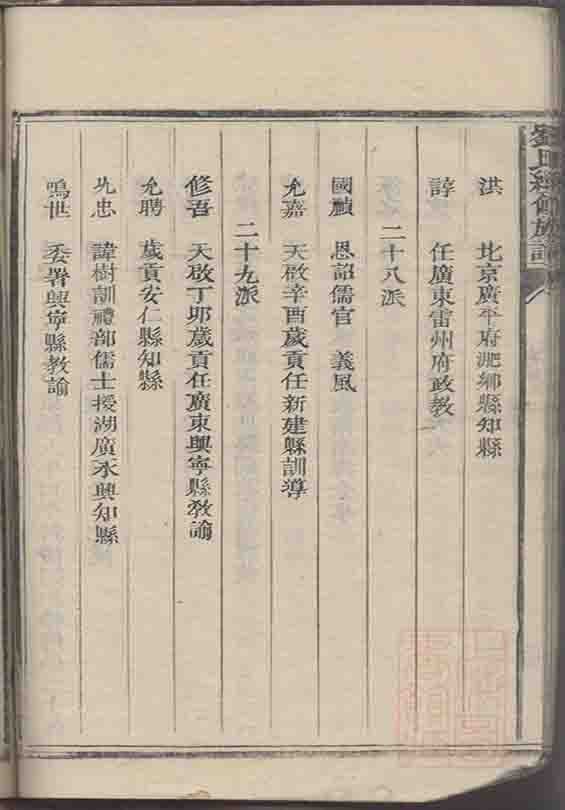 洪　北京廣平府淝鄉縣知縣
諄　任廣東雷州府政教
二十八派
國禎　恩詔儒官　義風
允嘉　天啟辛酉歲貢任新建縣訓導
二十九派
修吾　天啟丁卯歲貢任廣東興寧縣教諭
允聘　歲貢安仁縣知縣
允忠　諱樹訓禮部儒士授湖廣永興知縣
鳴世　委署興寧縣教諭